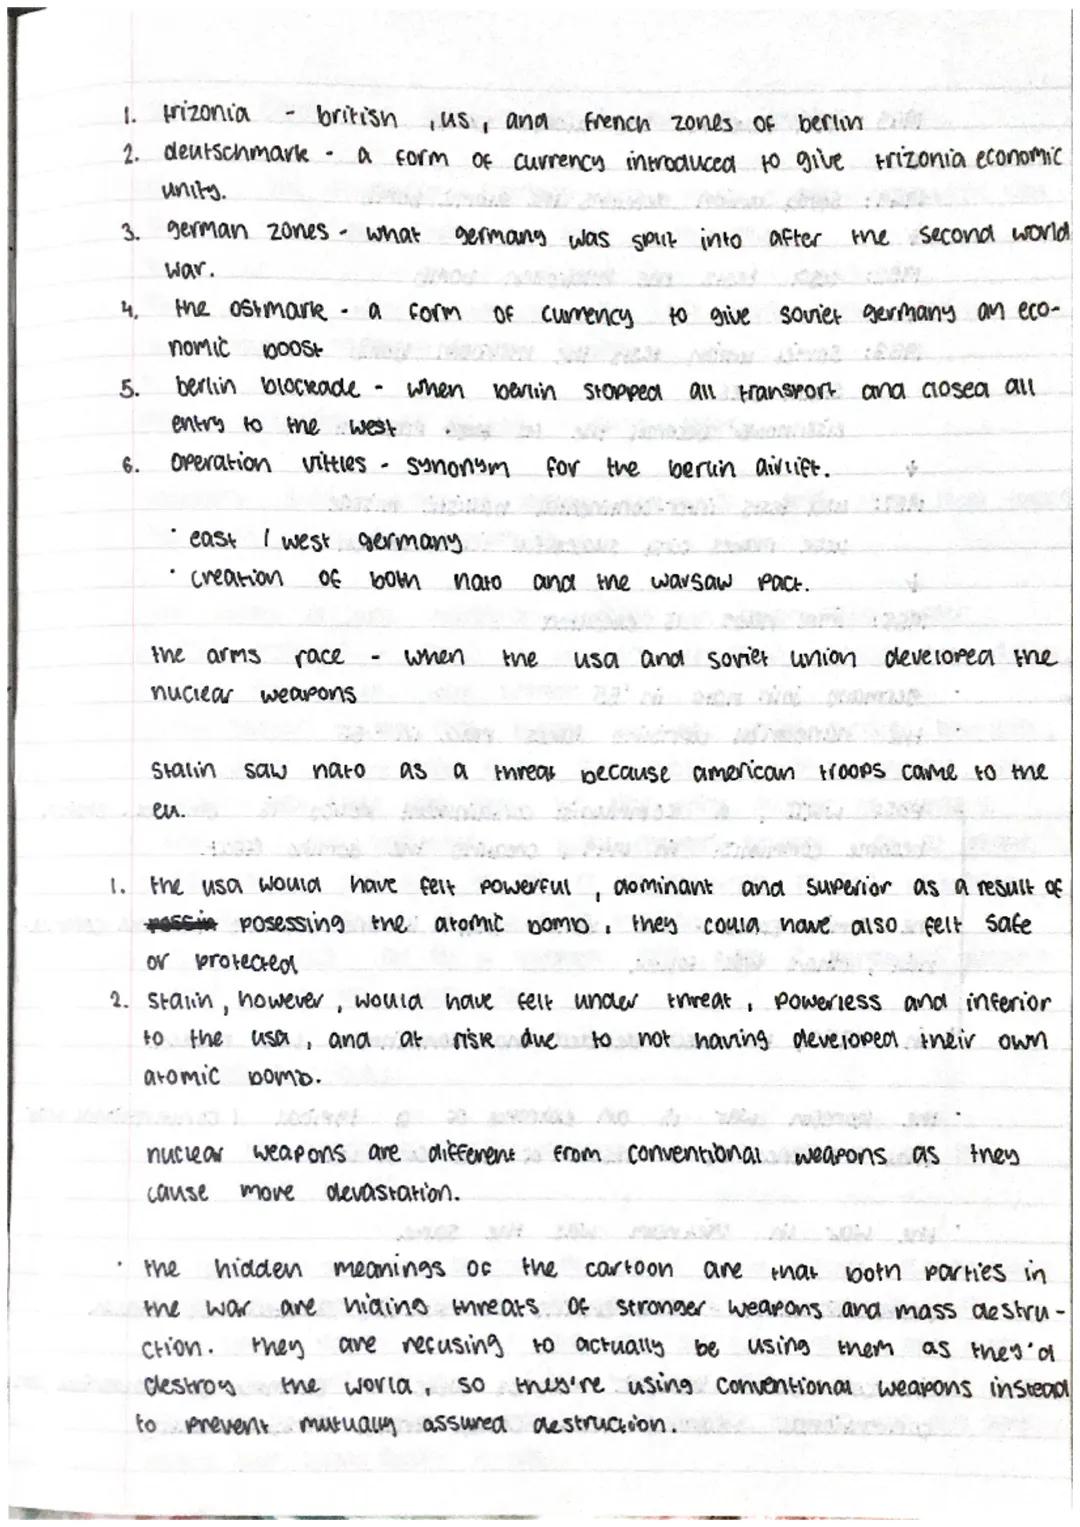 1. trizonia - british , us , and french zones of berlin
2. deutschmark - a form of currency introduced to give trizonia economic
unity.
3. german zones - what germany was split into after the second world
war.
4. the ostmark - a form of currency to give soviet germany an eco-
nomic boost
5. berlin blockade - when berlin stopped all transport and closed all
entry to the west .
6. operation vittles - synonym for the berlin airlift.
· east / west germany
· creation of both nato and the warsaw pact.
the arms race - when the usa and soviet union developed the
nuclear weapons
stalin saw nato as a threat because american troops came to the
eu.
1. the usa would have felt powerful , dominant and superior as a result of
posessing the atomic bomb . they could have also felt safe
or protected
2. stalin , however , would have felt under threat , powerless and inferior
to the usa , and at risk due to not having developed their own
atomic bomb.
nuclear weapons are different from conventional weapons as they
cause more devastation.
· the hidden meanings of the cartoon are that both parties in
the war are hiding threats of stronger weapons and mass destru-
ction. they are refusing to actually be using them as they'd
destroy the world , so they're using conventional weapons instead
to prevent mutually assured destruction.